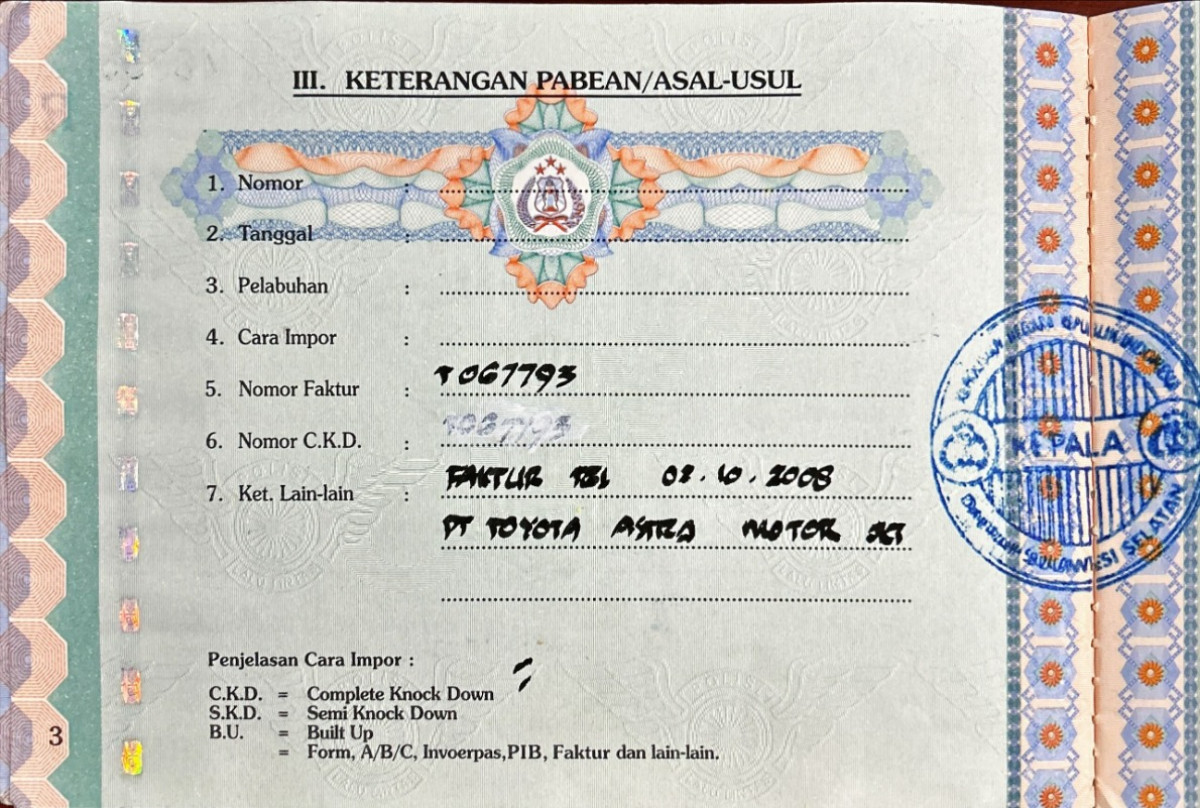 III. KETERANGAN PABEAN/ASAL-USUL
1. Nomor :
2. Tanggal :
3. Pelabuhan :
4. Cara Impor :
5. Nomor Faktur : T067793
6. Nomor C.K.D. : T067793
7. Ket. Lain-lain : FAKTUR TGL 02.10.2008
PT TOYOTA ASTRA MOTOR JKT
KEPALA
SULAWESI SELATAN
Penjelasan Cara Impor :
C.K.D. = Complete Knock Down
S.K.D. = Semi Knock Down
B.U. = Built Up
= Form, A/B/C, Invoerpas,PIB, Faktur dan lain-lain.
3